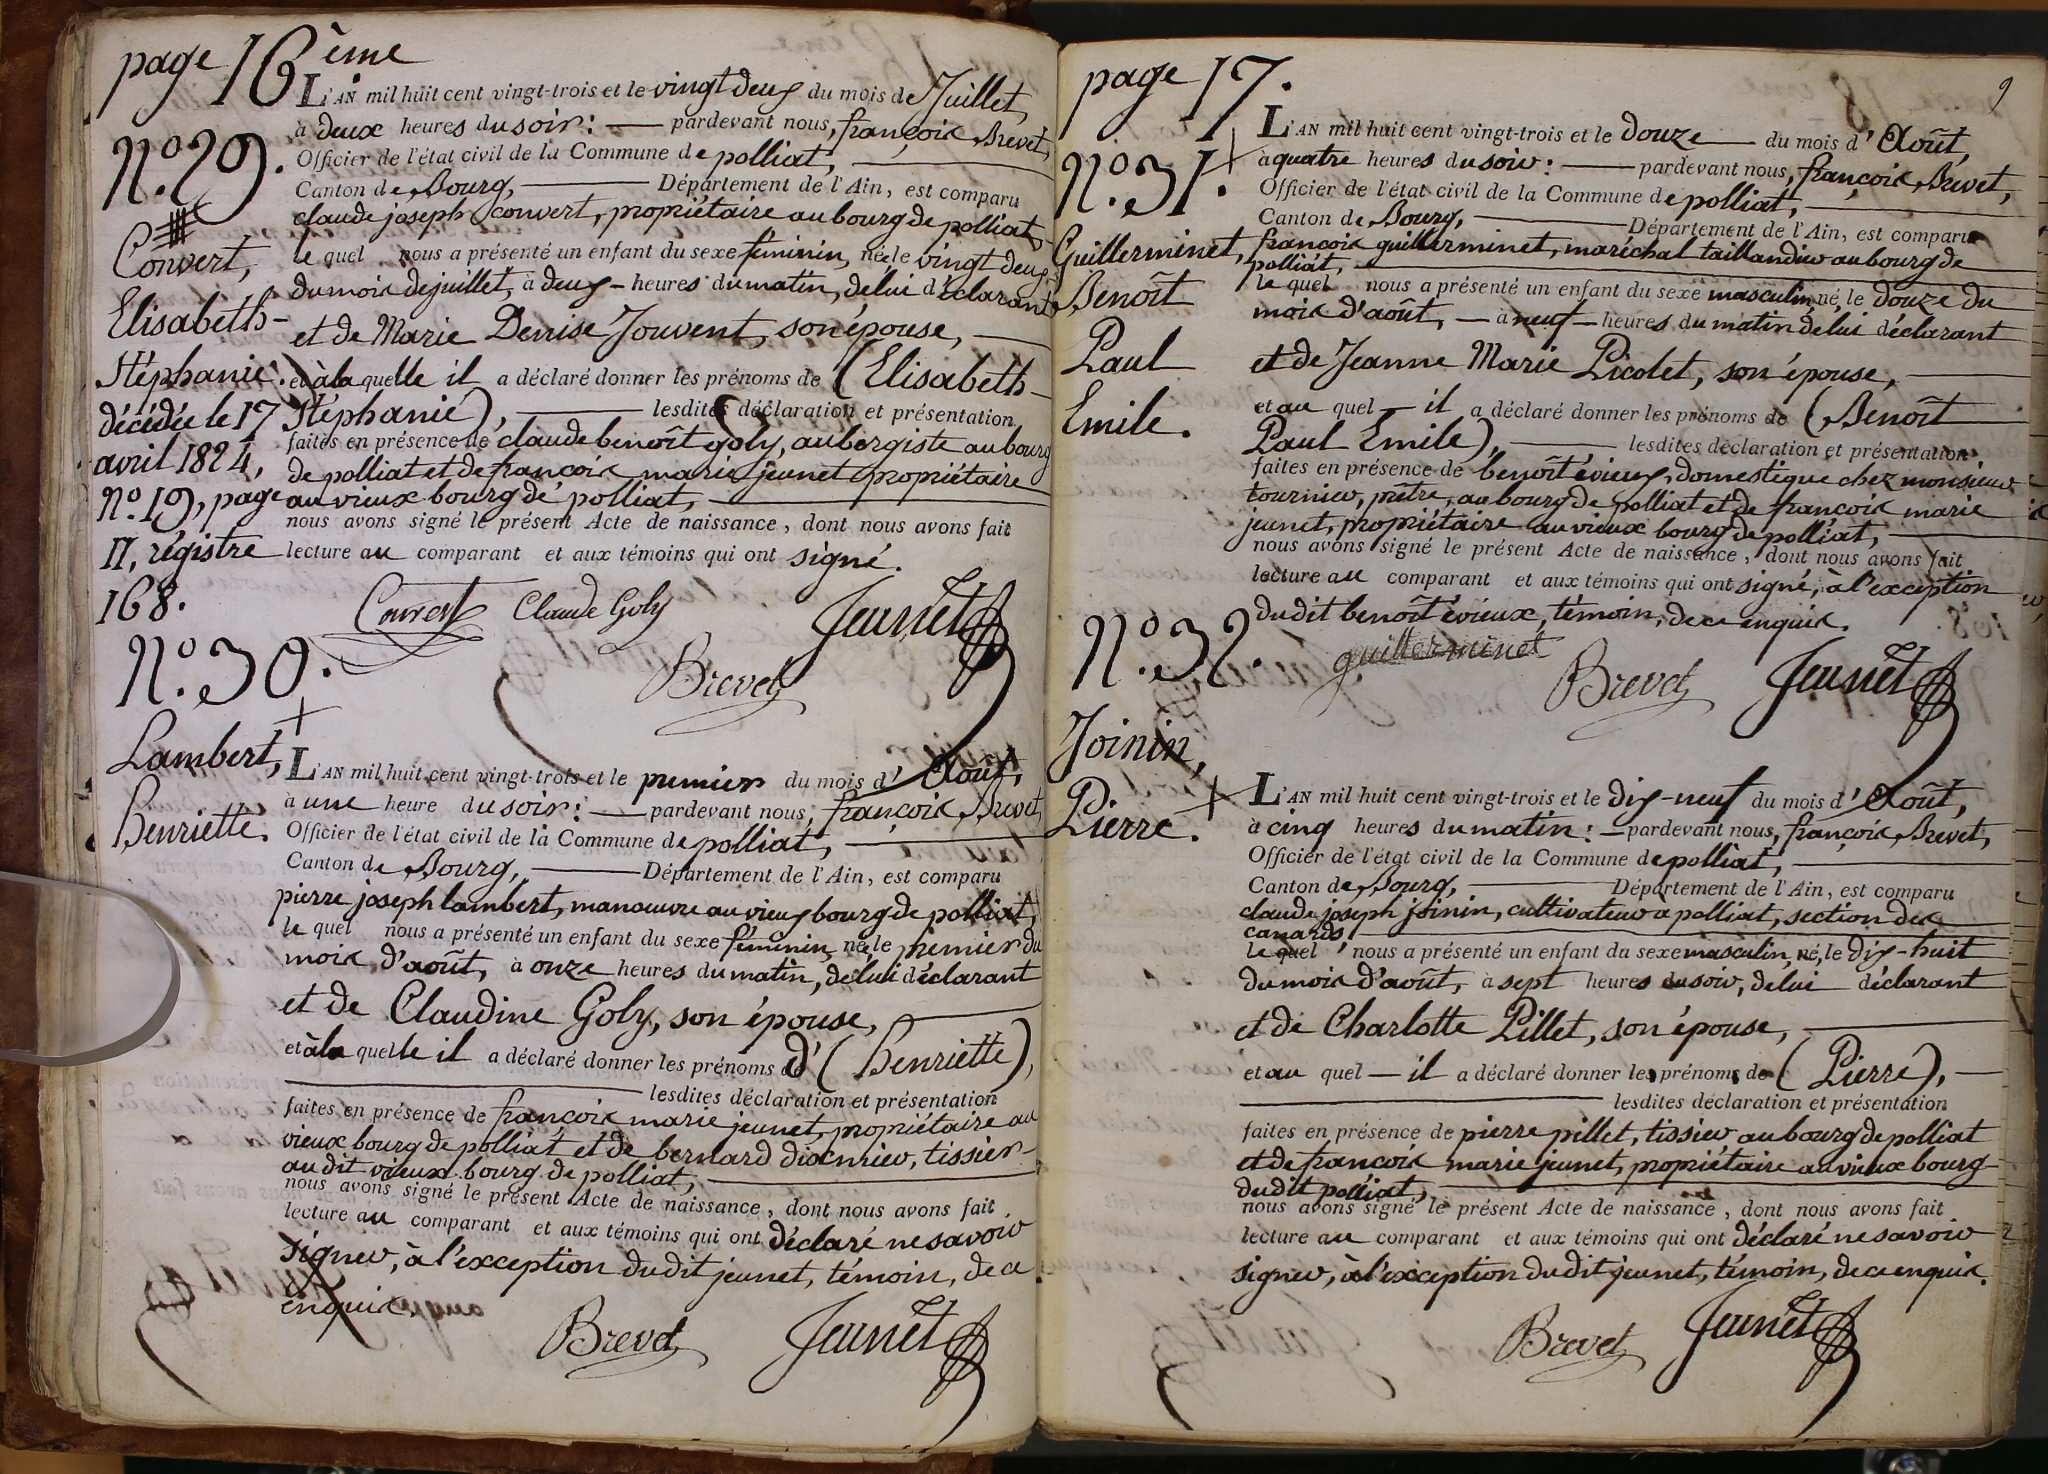 page 16ème
N.º 29.
Convert,
Elisabeth-
Stéphanie.
décédée le 17
avril 1824,
Nº. 19, page
11, régistre
168.
L'AN mil huit cent vingt-trois et le vingt deux du mois de Juillet,
à deux heures du soir: — pardevant nous, françois Brevet,
Officier de l'état civil de la Commune de polliat,
Canton de Bourg, Département de l'Ain, est comparu
claude joseph convert, propriétaire au bourg de polliat,
le quel nous a présenté un enfant du sexe féminin, née le vingt deux
du mois de juillet, à deux - heures du matin, de lui déclarant
et de Marie Denise Jouvent, son épouse,
et à la quelle il a déclaré donner les prénoms de (Elisabeth-
Stéphanie), lesdites déclaration et présentation
faites en présence de claude benoît goly, aubergiste au bourg
de polliat et de françois marie jeunet propriétaire
au vieux bourg de polliat,
nous avons signé le présent Acte de naissance, dont nous avons fait
lecture au comparant et aux témoins qui ont signé.
Convert Claude Goly Jeunet
Brevet
N.º 30.
Lambert,
henriette.
L'AN mil huit cent vingt-trois et le premier du mois d'Août,
à une heure du soir: — pardevant nous, françois Brevet,
Officier de l'état civil de la Commune de polliat,
Canton de Bourg, Département de l'Ain, est comparu
pierre joseph lambert, manœuvre au vieux bourg de polliat,
le quel nous a présenté un enfant du sexe féminin, née le premier du
mois d'août, à onze heures du matin, de lui déclarant
et de Claudine Goly, son épouse,
et à la quelle il a déclaré donner les prénoms d' (henriette),
lesdites déclaration et présentation
faites en présence de françois marie jeunet, propriétaire au
vieux bourg de polliat et de bernard, tissier
au dit vieux bourg de polliat,
nous avons signé le présent Acte de naissance, dont nous avons fait
lecture au comparant et aux témoins qui ont déclaré ne savoir
signer, à l'exception du dit jeunet, témoin, de ce
enquis.
Brevet Jeunet
page 17.
9
N.º 31.
Guillerminet,
Benoît
Paul
Emile.
L'AN mil huit cent vingt-trois et le douze du mois d'Août,
à quatre heures du soir: — pardevant nous, françois Brevet,
Officier de l'état civil de la Commune de polliat,
Canton de Bourg, Département de l'Ain, est comparu
françois guillerminet, maréchal taillandier au bourg de
polliat,
le quel nous a présenté un enfant du sexe masculin, né, le douze du
mois d'août, — à neuf — heures du matin de lui déclarant
et de Jeanne Marie Picolet, son épouse,
et au quel — il a déclaré donner les prénoms de (Benoît
Paul Emile), lesdites déclaration et présentation
faites en présence de benoît évieux, domestique chez monsieur
tournier, prêtre, au bourg de polliat et de françois marie
jeunet, propriétaire au vieux bourg de polliat,
nous avons signé le présent Acte de naissance, dont nous avons fait
lecture au comparant et aux témoins qui ont signé, à l'exception
du dit benoît évieux, témoin, de ce enquis.
guillerminet
Brevet Jeunet
N.º 32.
Joinin,
Pierre.
L'AN mil huit cent vingt-trois et le dix-neuf du mois d'Août,
à cinq heures du matin: — pardevant nous, françois Brevet,
Officier de l'état civil de la Commune de polliat,
Canton de Bourg, Département de l'Ain, est comparu
claude joseph joinin, cultivateur à polliat, section des
canards,
le quel nous a présenté un enfant du sexe masculin, né, le dix-huit
du mois d'août, à sept heures du soir, de lui déclarant
et de Charlotte Pillet, son épouse,
et au quel — il a déclaré donner les prénoms de (Pierre),
lesdites déclaration et présentation
faites en présence de pierre pillet, tissier au bourg de polliat
et de françois marie jeunet, propriétaire au vieux bourg
du dit polliat,
nous avons signé le présent Acte de naissance, dont nous avons fait
lecture au comparant et aux témoins qui ont déclaré ne savoir
signer, à l'exception du dit jeunet, témoin, de ce enquis.
Brevet Jeunet